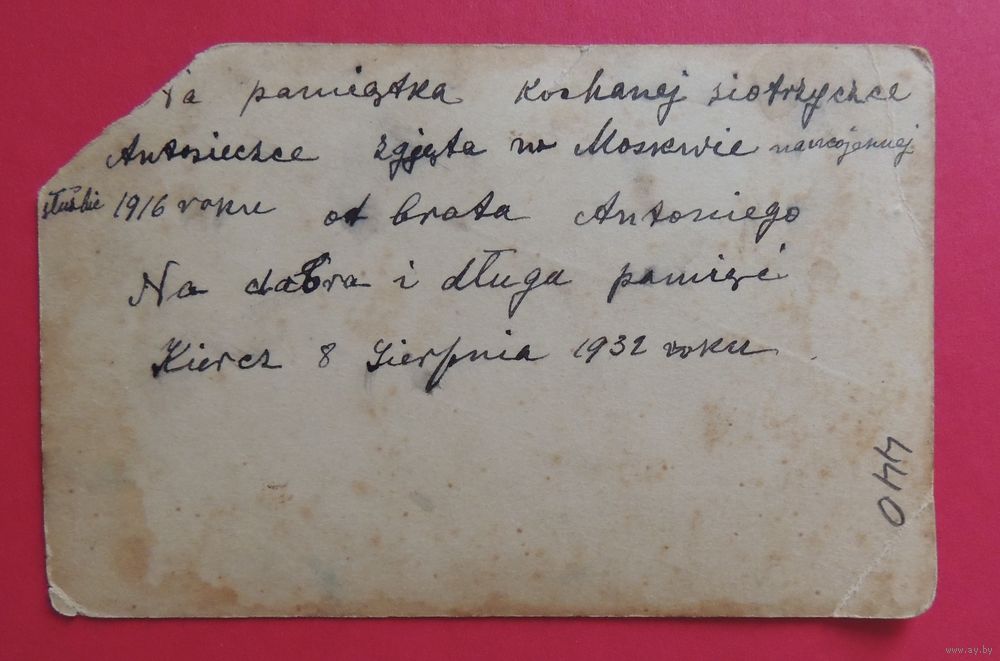 Na pamiątka kochanej siotrzyczce
Antosieczce zgjęta w Moskwie nawojennej
służbie 1916 roku od brata Antoniego
Na dabra i długa pamięć
Kiercz 8 Sierpnia 1932 roku
440
www.ay.by